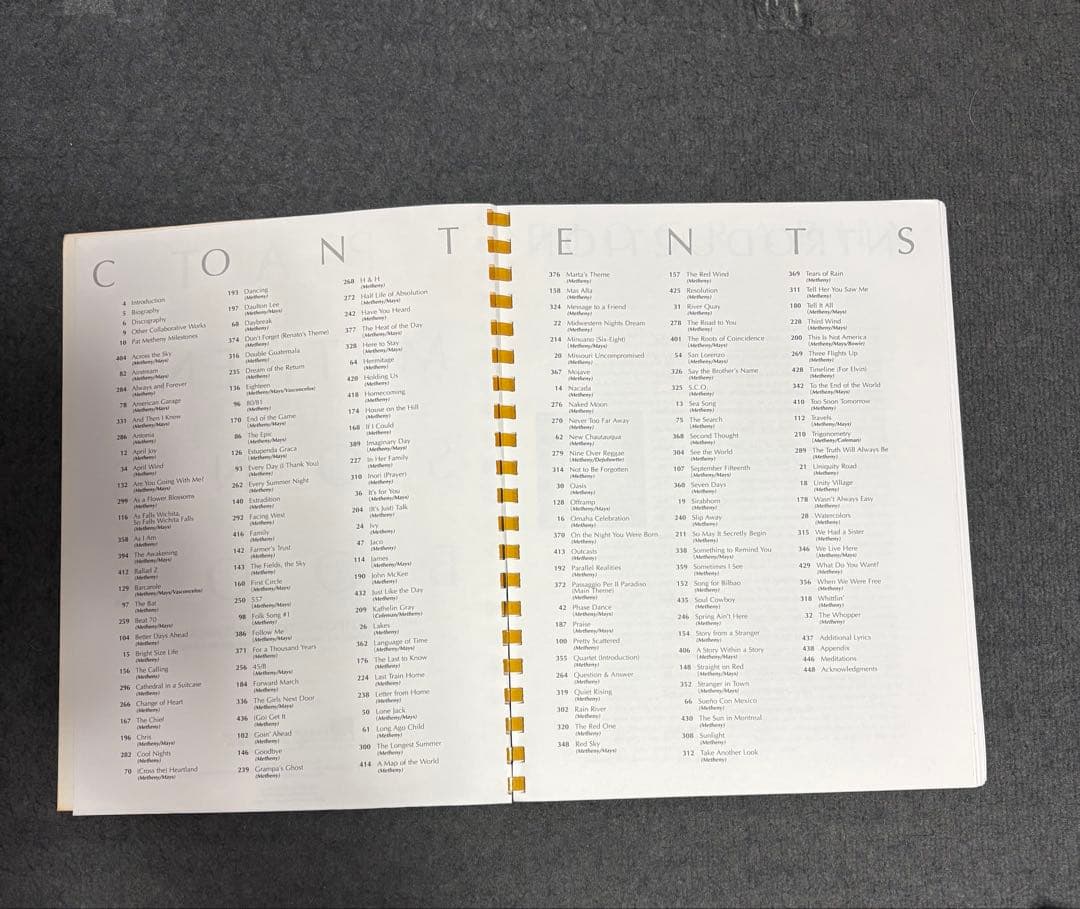 C O N T E N T S
4 Introduction
5 Biography
6 Discography
9 Other Collaborative Works
10 Pat Metheny Milestones
404 Across the Sky
(Metheny/Mays)
82 Airstream
(Metheny/Mays)
284 Always and Forever
(Metheny)
78 American Garage
(Metheny/Mays)
331 And Then I Know
(Metheny/Mays)
286 Antonia
(Metheny)
12 April Joy
(Metheny)
34 April Wind
(Metheny)
132 Are You Going With Me?
(Metheny/Mays)
299 As a Flower Blossoms
(Metheny)
116 As Falls Wichita,
So Falls Wichita Falls
(Metheny/Mays)
358 As I Am
(Metheny)
394 The Awakening
(Metheny/Mays)
412 Ballad Z
(Metheny)
129 Barcarole
(Metheny/Mays/Vasconcelos)
97 The Bat
(Metheny)
259 Beat 70
(Metheny/Mays)
104 Better Days Ahead
(Metheny)
15 Bright Size Life
(Metheny)
156 The Calling
(Metheny)
296 Cathedral in a Suitcase
(Metheny)
266 Change of Heart
(Metheny)
167 The Chief
(Metheny)
196 Chris
(Metheny/Mays)
282 Cool Nights
(Metheny)
70 (Cross the) Heartland
(Metheny/Mays)
193 Dancing
(Metheny)
197 Daulton Lee
(Metheny/Mays)
68 Daybreak
(Metheny)
374 Don't Forget (Renato's Theme)
(Metheny)
316 Double Guatemala
(Metheny)
235 Dream of the Return
(Metheny)
136 Eighteen
(Metheny/Mays/Vasconcelos)
96 80/81
(Metheny)
170 End of the Game
(Metheny/Mays)
86 The Epic
(Metheny/Mays)
126 Estupenda Graca
(Metheny/Mays)
93 Every Day (I Thank You)
(Metheny)
262 Every Summer Night
(Metheny)
140 Extradition
(Metheny)
292 Facing West
(Metheny)
416 Family
(Metheny)
142 Farmer's Trust
(Metheny)
143 The Fields, the Sky
(Metheny)
160 First Circle
(Metheny/Mays)
250 5-5-7
(Metheny/Mays)
98 Folk Song #1
(Metheny)
386 Follow Me
(Metheny/Mays)
371 For a Thousand Years
(Metheny)
256 45/8
(Metheny/Mays)
184 Forward March
(Metheny)
336 The Girls Next Door
(Metheny/Mays)
436 (Go) Get It
(Metheny)
102 Goin' Ahead
(Metheny)
146 Goodbye
(Metheny)
239 Grampa's Ghost
(Metheny)
268 H & H
(Metheny)
272 Half Life of Absolution
(Metheny/Mays)
242 Have You Heard
(Metheny)
377 The Heat of the Day
(Metheny/Mays)
328 Here to Stay
(Metheny/Mays)
64 Hermitage
(Metheny)
420 Holding Us
(Metheny)
418 Homecoming
(Metheny)
174 House on the Hill
(Metheny)
168 If I Could
(Metheny)
389 Imaginary Day
(Metheny/Mays)
227 In Her Family
(Metheny)
310 Inori (Prayer)
(Metheny)
36 It's for You
(Metheny/Mays)
204 (It's Just) Talk
(Metheny)
24 Ivy
(Metheny)
47 Jaco
(Metheny)
114 James
(Metheny/Mays)
190 John McKee
(Metheny)
432 Just Like the Day
(Metheny)
209 Kathelin Gray
(Coleman/Metheny)
26 Lakes
(Metheny)
362 Language of Time
(Metheny)
176 The Last to Know
(Metheny)
224 Last Train Home
(Metheny)
238 Letter from Home
(Metheny)
50 Lone Jack
(Metheny/Mays)
61 Long Ago Child
(Metheny)
300 The Longest Summer
(Metheny)
414 A Map of the World
(Metheny)
376 Marta's Theme
(Metheny)
158 Mas Alla
(Metheny)
324 Message to a Friend
(Metheny)
22 Midwestern Nights Dream
(Metheny)
214 Minuano (Six-Eight)
(Metheny/Mays)
20 Missouri Uncompromised
(Metheny)
367 Mojave
(Metheny)
14 Nacada
(Metheny)
276 Naked Moon
(Metheny)
270 Never Too Far Away
(Metheny)
62 New Chautauqua
(Metheny)
279 Nine Over Reggae
(Metheny/DeJohnette)
314 Not to Be Forgotten
(Metheny)
30 Oasis
(Metheny)
128 Offramp
(Metheny/Mays)
16 Omaha Celebration
(Metheny)
370 On the Night You Were Born
(Metheny)
413 Outcasts
(Metheny)
192 Parallel Realities
(Metheny)
372 Passaggio Per Il Paradiso
(Main Theme)
(Metheny)
42 Phase Dance
(Metheny/Mays)
187 Praise
(Metheny/Mays)
100 Pretty Scattered
(Metheny)
355 Quartet (Introduction)
(Metheny)
264 Question & Answer
(Metheny)
319 Quiet Rising
(Metheny)
302 Rain River
(Metheny)
320 The Red One
(Metheny)
348 Red Sky
(Metheny/Mays)
157 The Red Wind
(Metheny)
425 Resolution
(Metheny)
31 River Quay
(Metheny)
278 The Road to You
(Metheny)
401 The Roots of Coincidence
(Metheny/Mays)
54 San Lorenzo
(Metheny/Mays)
326 Say the Brother's Name
(Metheny)
325 S.C.O.
(Metheny)
13 Sea Song
(Metheny)
75 The Search
(Metheny/Mays)
368 Second Thought
(Metheny)
304 See the World
(Metheny)
107 September Fifteenth
(Metheny/Mays)
360 Seven Days
(Metheny)
19 Sirabhorn
(Metheny)
240 Slip Away
(Metheny)
211 So May It Secretly Begin
(Metheny)
338 Something to Remind You
(Metheny/Mays)
359 Sometimes I See
(Metheny)
152 Song for Bilbao
(Metheny)
435 Soul Cowboy
(Metheny)
246 Spring Ain't Here
(Metheny)
154 Story from a Stranger
(Metheny)
406 A Story Within a Story
(Metheny/Mays)
148 Straight on Red
(Metheny/Mays)
352 Stranger in Town
(Metheny/Mays)
66 Sueño Con Mexico
(Metheny)
430 The Sun in Montreal
(Metheny)
308 Sunlight
(Metheny)
312 Take Another Look
(Metheny)
369 Tears of Rain
(Metheny)
311 Tell Her You Saw Me
(Metheny)
180 Tell It All
(Metheny/Mays)
228 Third Wind
(Metheny/Mays)
200 This Is Not America
(Metheny/Mays/Bowie)
269 Three Flights Up
(Metheny)
428 Timeline (For Elvin)
(Metheny)
342 To the End of the World
(Metheny/Mays)
410 Too Soon Tomorrow
(Metheny)
112 Travels
(Metheny/Mays)
210 Trigonometry
(Metheny/Coleman)
289 The Truth Will Always Be
(Metheny)
21 Uniquity Road
(Metheny)
18 Unity Village
(Metheny)
178 Wasn't Always Easy
(Metheny)
28 Watercolors
(Metheny)
315 We Had a Sister
(Metheny)
346 We Live Here
(Metheny/Mays)
429 What Do You Want?
(Metheny)
356 When We Were Free
(Metheny)
318 Whittlin'
(Metheny)
32 The Whopper
(Metheny)
437 Additional Lyrics
438 Appendix
446 Meditations
448 Acknowledgments